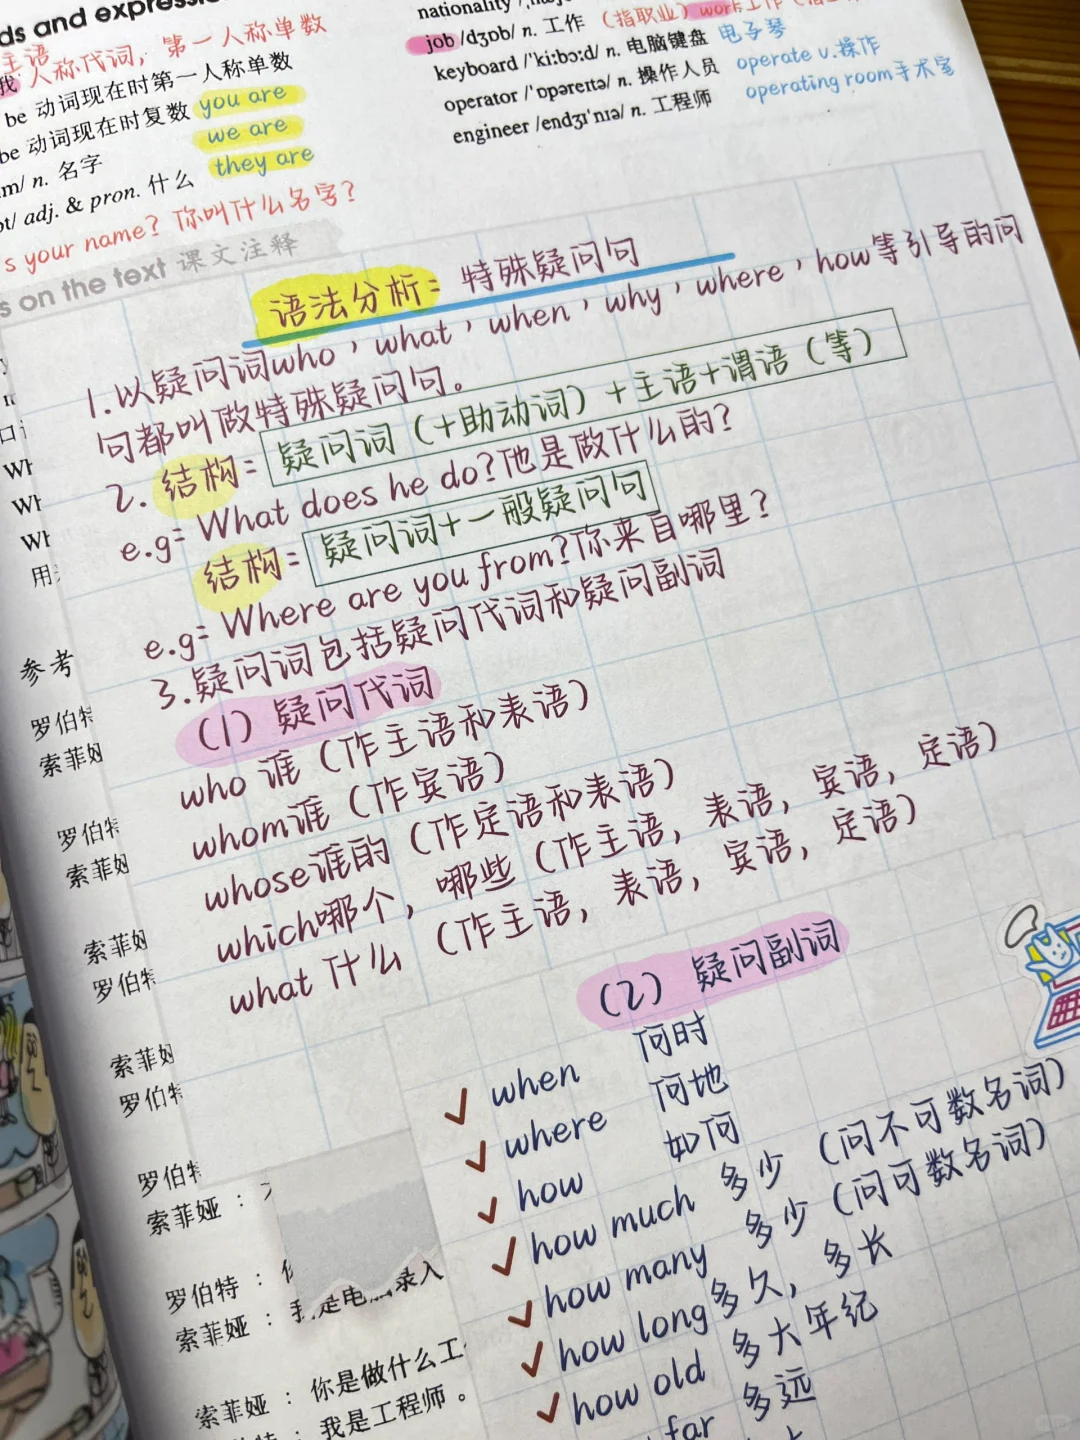 ds and expression
主语
我 人称代词, 第一人称单数
be 动词现在时第一人称单数
be 动词现在时复数 you are
we are
they are
n. 名字
adj. & pron. 什么
s your name? 你叫什么名字?
nationality
job /dʒɒb/ n. 工作 (指职业) work 工作
keyboard /'kiːbɔːd/ n. 电脑键盘 电子琴
operator /'ɒpəreɪtə/ n. 操作人员 operate v.操作
operating room 手术室
engineer /endʒɪ'nɪə/ n. 工程师
s on the text 课文注释
语法分析: 特殊疑问句
1.以疑问词who, what, when, why, where, how等引导的问
句都叫做特殊疑问句。
2. 结构: 疑问词 (+助动词) + 主语+谓语 (等)
e.g: What does he do?他是做什么的?
结构: 疑问词+一般疑问句
e.g: Where are you from?你来自哪里?
3.疑问词包括疑问代词和疑问副词
(1) 疑问代词
who 谁 (作主语和表语)
whom谁 (作宾语)
whose谁的 (作定语和表语)
which哪个, 哪些 (作主语, 表语, 宾语, 定语)
what 什么 (作主语, 表语, 宾语, 定语)
(2) 疑问副词
when 何时
where 何地
how 如何
how much 多少 (问不可数名词)
how many 多少 (问可数名词)
how long 多久, 多长
how old 多大年纪
far 多远
参考
罗伯特
索菲娅
罗伯特
索菲娅
索菲娅
罗伯特
索菲娅
罗伯特
罗伯特
索菲娅 :
罗伯特 :
索菲娅 : 我是电脑录入
索菲娅 : 你是做什么工
: 我是工程师。